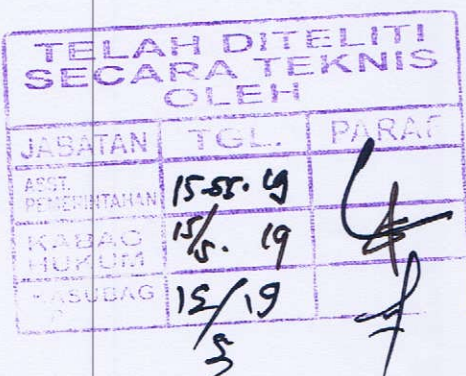 TELAH DITELITI
SECARA TEKNIS
OLEH
JABATAN TGL. PARAF
ASST.
PEMERINTAHAN 15.05.19
KABAG
HUKUM 15/5. 19
KASUBAG 15/19
5